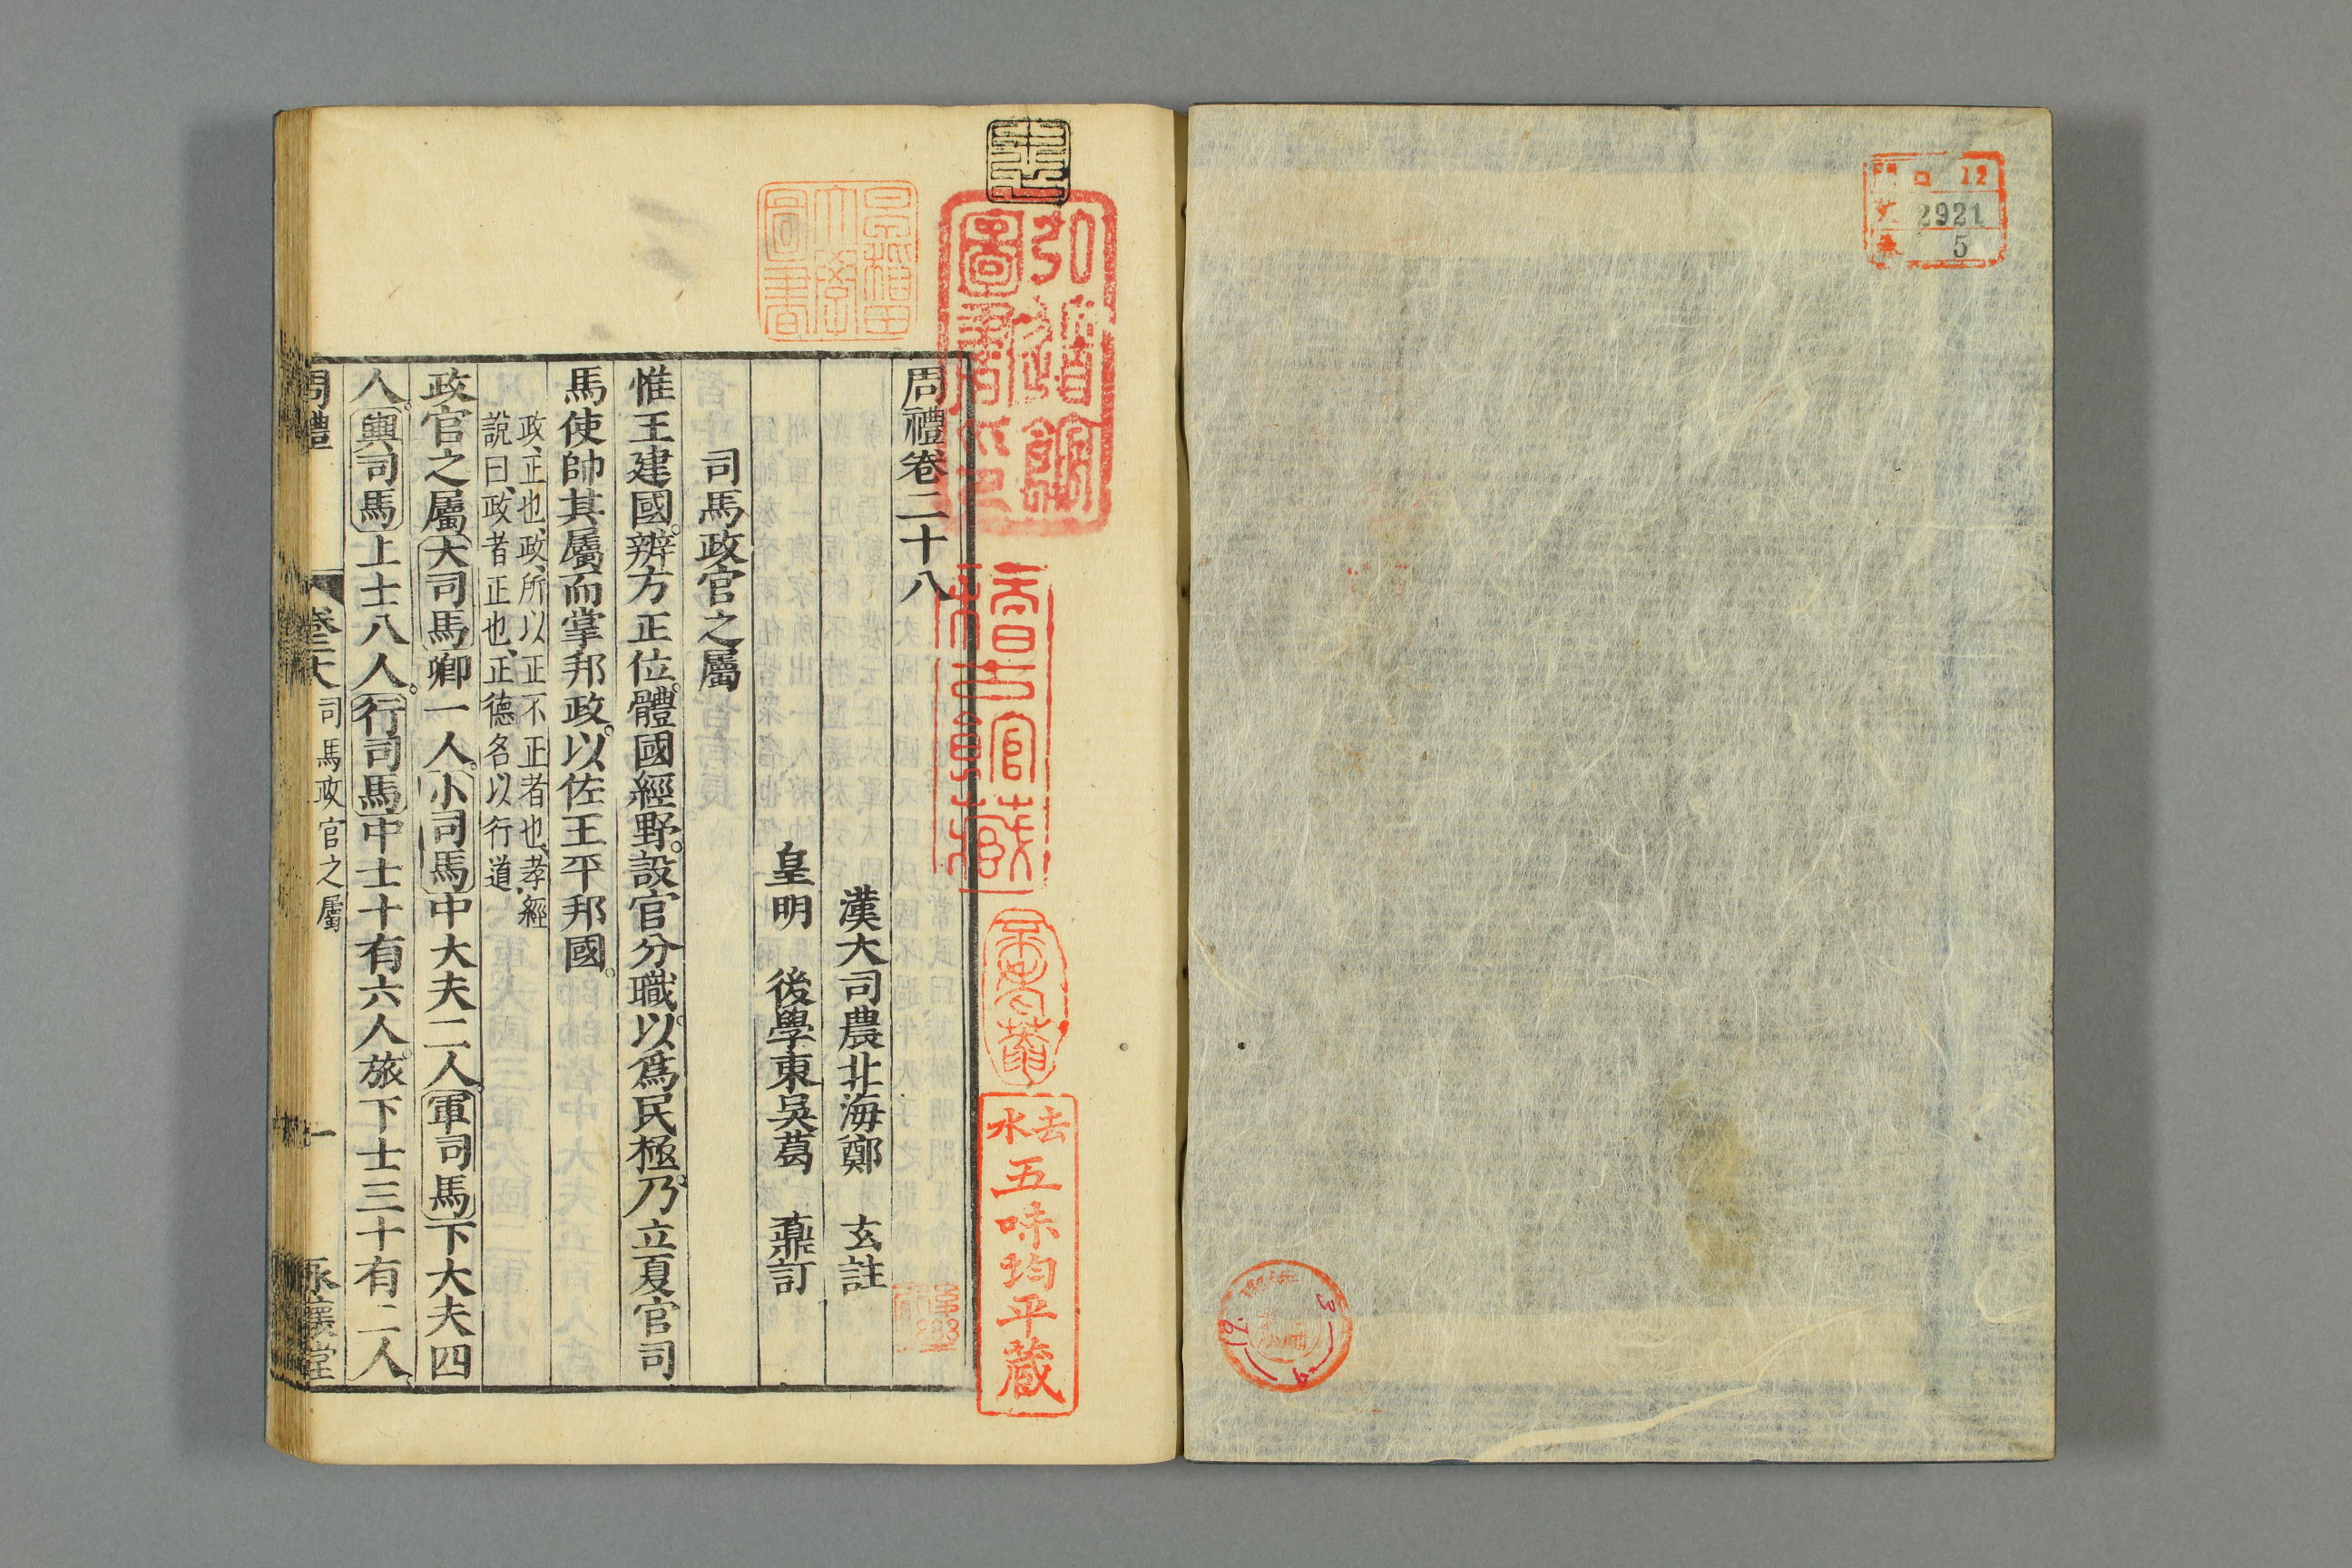 12
2921
5
弘道館
圖書印
稽古官藏
去水
五味均平蔵
早稲田
大學
圖書
周禮卷二十八
漢大司農北海鄭 玄註
皇明 後學東吳葛 鼒訂
司馬政官之屬
惟王建國。辨方正位。體國經野。設官分職。以爲民極。乃立夏官司
馬使帥其屬而掌邦政。以佐王平邦國。
政、正也、政、所以正不正者也、孝經
說曰、政者正也、正德名以行道、
政官之屬大司馬卿一人。小司馬中大夫二人。軍司馬下大夫四
人。輿司馬上士八人。行司馬中士十有六人。旅下士三十有二人
周禮 卷二十八 司馬政官之屬 一 永懷堂